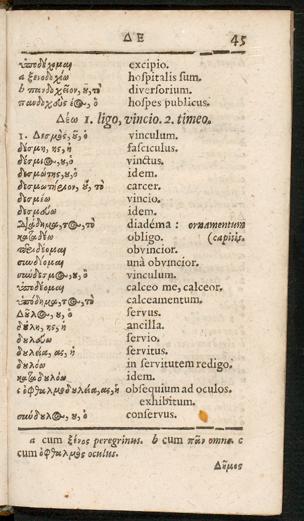 ΔΕ 45
ὑποδέχομαι excipio.
a ξενοδοχέω hospitalis sum.
b πανδοχεῖον, ου, τὸ diversorium.
πανδοχεὺς έος, ὁ hospes publicus.
Δέω 1. ligo, vincio. 2. timeo.
1. Δεσμὸς, οῦ, ὁ vinculum.
δέσμη, ης, ἡ fasciculus.
δέσμιος, ου, ὁ vinctus.
δεσμώτης, ου, ὁ idem.
δεσμωτήριον, ου, τὸ carcer.
δεσμέω vincio.
δεσμεύω idem.
Διάδημα, τος, τὸ diadéma: ornamentum
καταδέω obligo. (capitis.
obvincior.
συνδέομαι unà obvincior.
σύνδεσμος, ου, ὁ vinculum.
ὑποδέομαι calceo me, calceor.
ὑπόδημα, τος, τὸ calceamentum.
Δοῦλος, ου, ὁ servus.
δούλη, ης, ἡ ancilla.
δουλεύω servio.
δουλεία, ας, ἡ servitus.
δουλόω in servitutem redigo.
καταδουλόω idem.
c ὀφθαλμοδουλεία, ας, ἡ obsequium ad oculos.
exhibitum.
σύνδουλος, ου, ὁ conservus.
a cum ξένος peregrinus. b cum πᾶν omne. c
cum ὀφθαλμὸς oculus.
Δῆμος